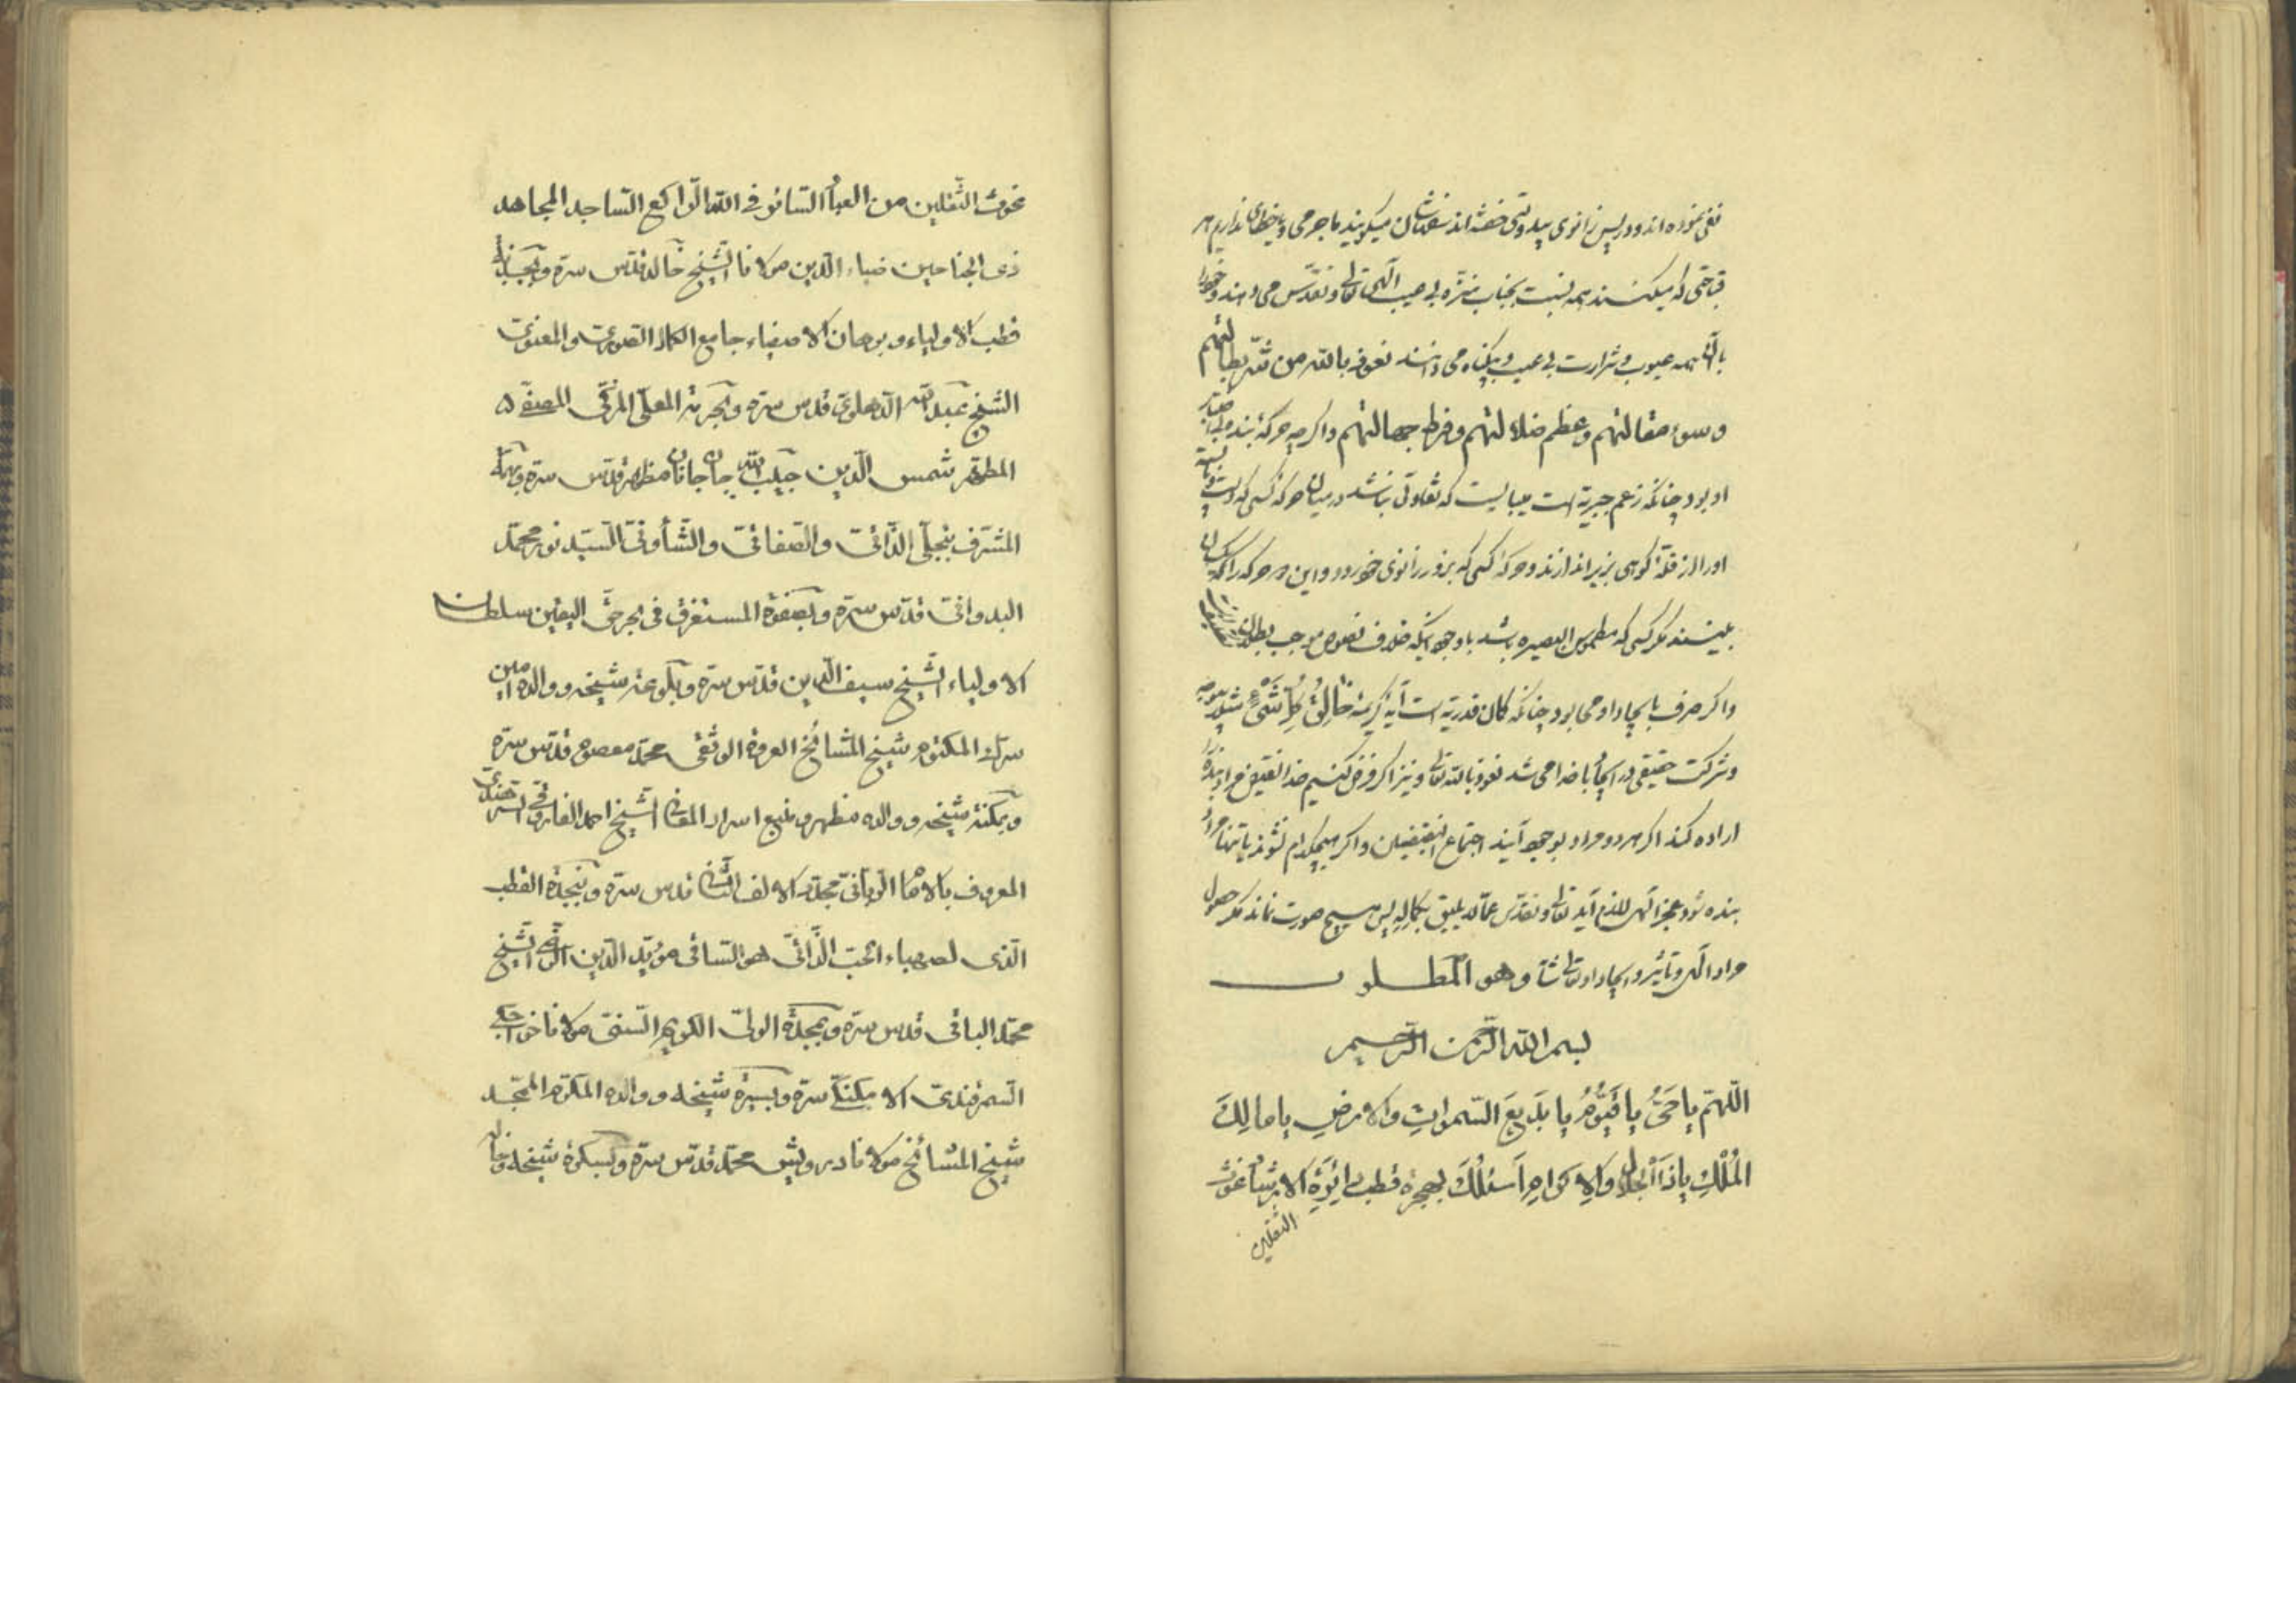 نفی نموده‌اند و در پس زانوی بیدولتی خفته‌اند نفوسشان میگویند ما جرمی و خطای نداریم هر
قباحتی که میکنند همه نسبت بجناب منزه بی عیب الهی تعالی و تقدس می دهند و خود را
با آن همه عیوب و شرارت بی عیب و بیگناه می دانند نعوذ بالله من شر بطالتهم
وسوء مقالتهم وعظم ضلالتهم وفرط جهالتهم واگر چه حرکهٔ بنده بی اختیار
او بود چنانکه زعم جبریه است میبایست که تفاوتی نباشد در میان حرکهٔ کسی که دست و پا بسته
او را از قلهٔ کوهی بزیر اندازند و حرکهٔ کسی که بزور زانوی خود رود و این هر دو حرکه را یکسان
نبیند مگر کسی که مطموس البصیره باشد با وجود آنکه خلاف نصوص موجب بطلان
واگر صرف بایجاد او می بود چنانکه گمان قدریه است آیهٔ کریمهٔ خَالِقُ كُلِّ شَيْءٍ
وشرکت حقیقی در ایجاد با خدا می شد نعوذ بالله تعالی و نیز اگر فرض کنیم خدا نقیض مراد بنده را
اراده کند اگر هر دو مراد بوجود آیند اجتماع النقیضین واگر هیچکدام نشوند یا تنها مراد
بنده شود عجز الهی لازم آید تعالی وتقدس عما لا یلیق بکماله پس هیچ صورت نماند مگر حصول
مراد الهی و تأثیر و ایجاد او تعالی شانه وهو المطلوب
بسم الله الرحمن الرحيم
اللّهمّ يا حَيُّ يا قَيُّومُ يا بَدِيعَ السّمواتِ والارضِ يا مالِكَ
المُلْكِ ياذَا الجَلالِ وَالاِكرامِ اَسئلُكَ بحرمة قطب دائرةِ الارشاد غوث
الثقلين
غوث الثّقلين من العباد السّائر فى الله الرّاكع السّاجد المجاهد
ذى الجناحين ضياء الدّين مولانا الشّيخ خالد قدّس سرّه وبحبّذا
قطب الاولياء وبرهان الاصفياء جامع الكمال الصّورىّ والمعنوىّ
الشّيخ عبد الله الدّهلوىّ قدس سرّه وبحرمة المعلّى المزكّى المصفّى
المطهّر شمس الدّين حبيب الله جان جانان مظهر قدّس سرّه وبهمّة
المشرّف بتجلّى الذّاتىّ والصّفاتىّ والشّأونىّ السّيّد نور محمّد
البدوانىّ قدّس سرّه وبصفوة المستغرق فى بحر حقّ اليقين سلطان
الاولياء الشّيخ سيف الدّين قدّس سرّه وبلوعة شيخه ووالده امين
سرّك المكتوم شيخ المشائخ العروة الوثقى محمّد معصوم قدّس سرّه
وبمكنة شيخه ووالده مظهر ومنبع اسرار المعانى الشّيخ احمد الفاروقى السّرهندىّ
المعروف بالامام الرّبانىّ مجدّد الالف الثّانى قدس سرّه وبنجدة القطب
الّذى لصهباء الحبّ الذّاتىّ هو السّاقى مؤيّد الدّين الرّضى الشّيخ
محمّد الباقى قدس سرّه وبمجدة الولىّ الكريم السّنىّ مولانا خواجكى
السّمرقندىّ الامكنكى سرّه وبسيرة شيخه ووالده المكرّم الممجّد
شيخ المشائخ مولانا درويش محمّد قدّس سرّه وبسكرة شيخه وخاله